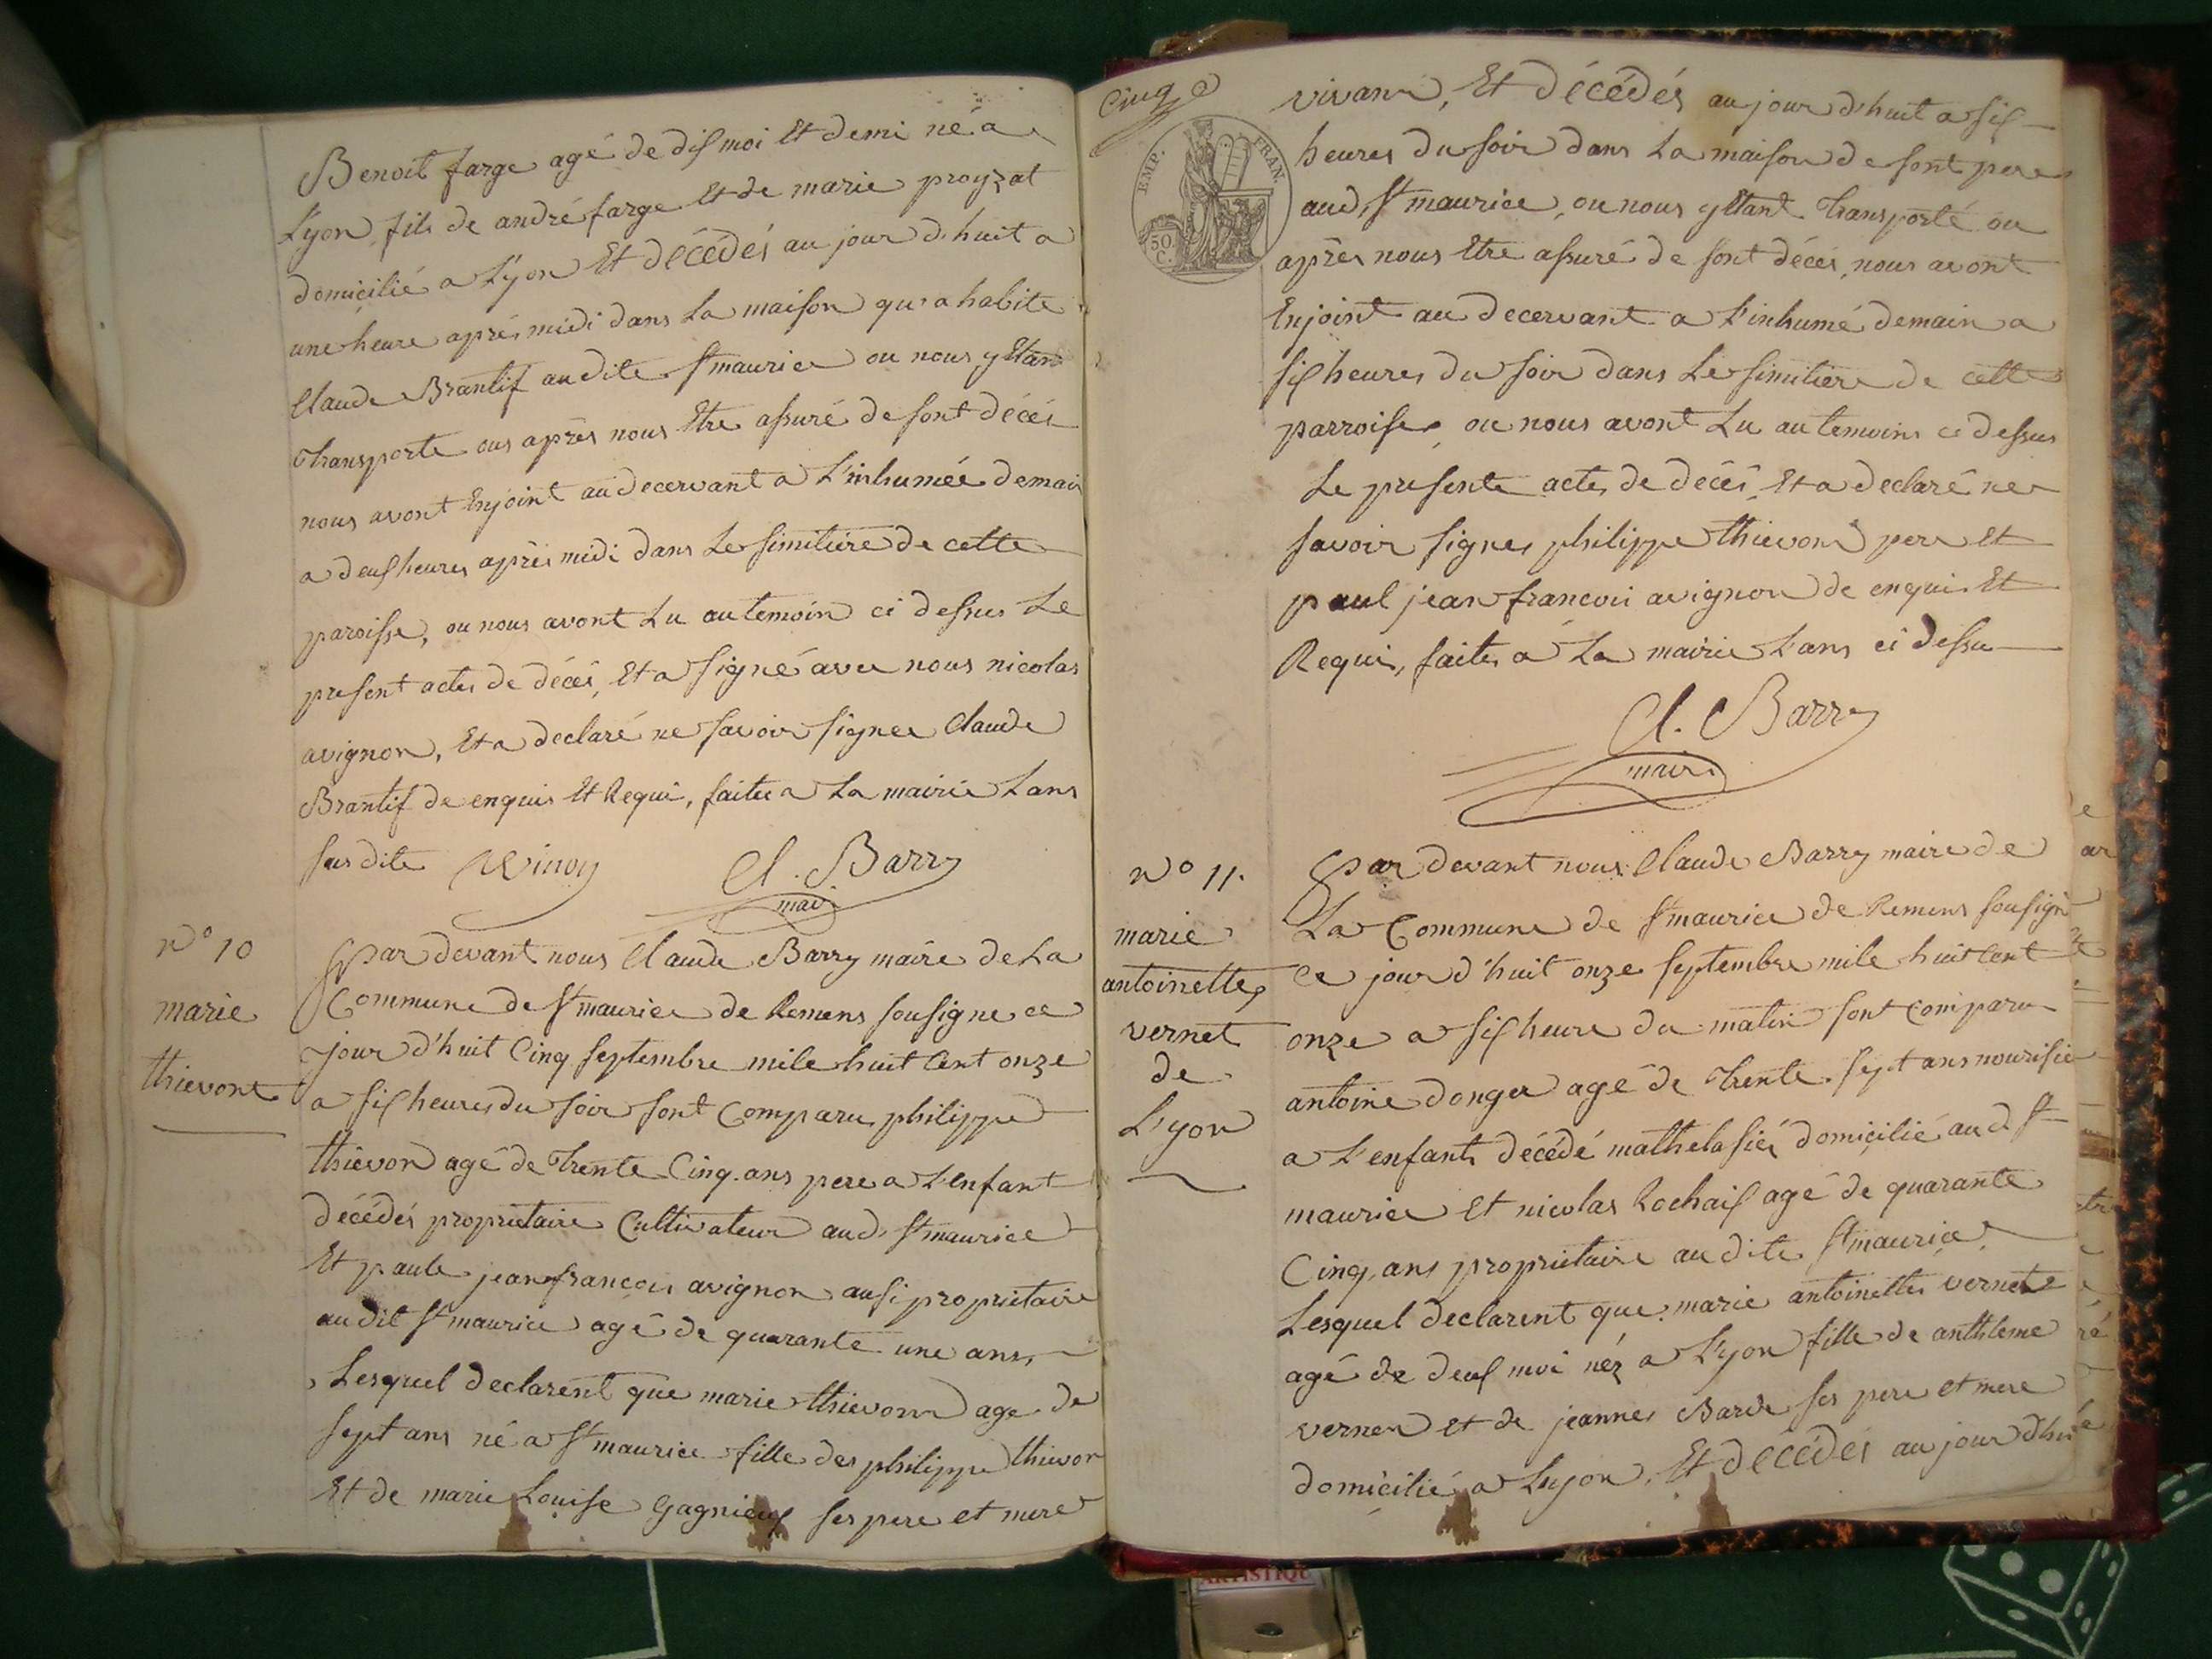 Benoit farge agé de dix moi Et demi né a
Lyon fils de andré farge Et de marie proyzat
domicilié a Lyon Et décédés au jour d'huit a
une heure après midi dans La maison qu'a habite
Claude Brantif audite St maurice ou nous y Etan
Transporte ous après nous Etre assuré de sont décés
nous avont Enjoint au decervant a L'inhumée demain
a deux heures après midi dans Le simitière de cette
paroisse, ou nous avont Lu au temoin ci dessus Le
present actes de décés, Et a signé avec nous nicolas
avignon, Et a declaré ne savoir signer Claude
Brantif de enquis Et Requi, faites a La mairie L'ans
susdite Cl. Barry
mair
N° 10
marie
thievont
Par devant nous Claude Barry maire de La
Commune de St maurice de Remens sousigne ce
jour d'huit Cinq septembre mile huit Cent onze
a six heures du soir sont Comparu philippe
thievon agé de Trente Cinq ans pere a L'enfant
décédés proprietaire Cultivateur aud. St maurice
Et paule jean françois avignon ausi proprietaire
audit St maurice agé de quarante une ans,
Lesquel declarent que marie thievon age de
sept ans né a St maurice fille des philippe thievon
Et de marie Louise Gagnieux ses pere et mere
Cinq
EMP. FRAN.
50 C.
vivans, Et décédés au jour d'huit a six
heures du soir dans La maison de sont pere
aud. St maurice, ou nous y Etant Transporté ou
après nous Etre assuré de sont décés, nous avont
Enjoint au decervant a L'inhumé demain a
six heures du soir dans Le simitiere de cette
parroisse, ou nous avont Lu au temoins ce dessus
Le presente actes de décés, Et a declaré ne
savoir signer philippe thievon pere Et
paul jean francois avignon de enquis Et
Requis, faites a La mairie L'ans ci dessu
Cl. Barry
maire
N° 11.
marie
antoinettes
vernet
de
Lyon
Par devant nous Claude Barry maire de
La Commune de St maurice de Remens sousigné
Ce jour d'huit onze septembre mile huit Cent
onze a six heure du matin sont Comparu
antoine donger agé de Trente sept ans nourisie
a L'enfants décédé mathelasiés domicilié aud. St
maurice Et nicolas Rochaix agé de quarante
Cinq ans proprietaire audite St maurice
Lesquel declarent que marie antoinettes vernet
agé de deux moi néz a Lyon fille de anthleme
vernen et de jeannes Barde ses pere et mere
domicilié a Lyon, Et décédés au jour d'hui
ARTISTIQU